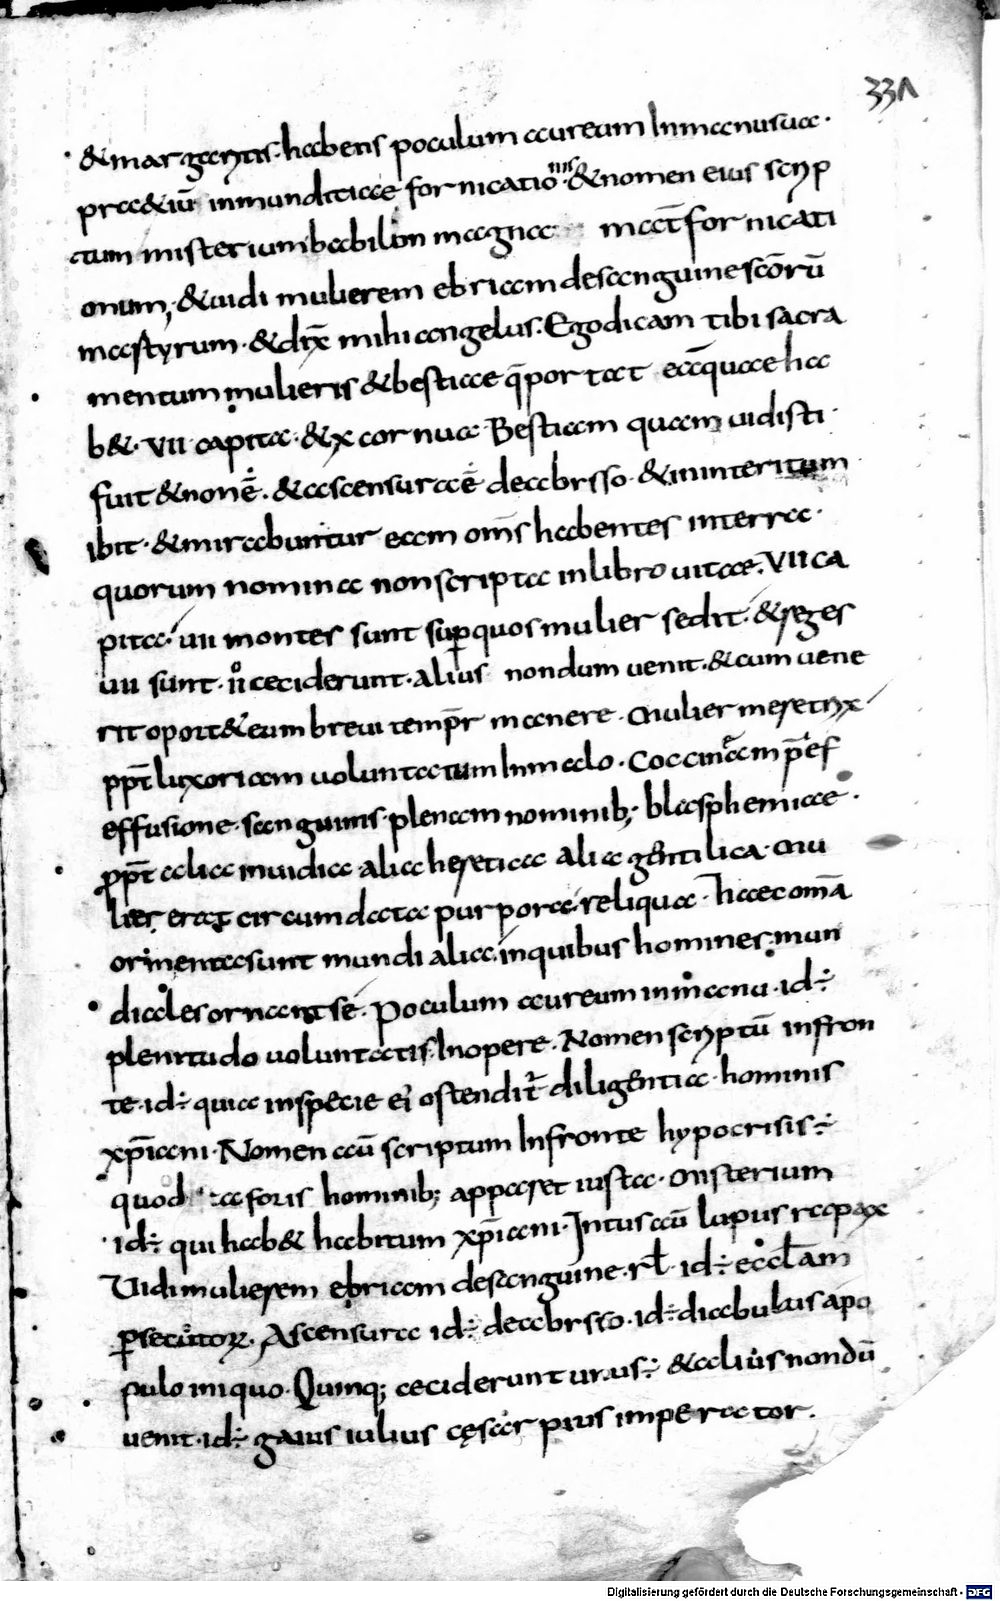 331
& margaritis· habens poculum aureum In manu sua·
pra&iū inmunditiae fornicationis·& nomen eius scrip
tum misterium babilon magna mat̄ fornicati
onum; & uidi mulierem ebriam de sanguine scōrū
mastyrum· & dix̄ mihi angelus· Ego dicam tibi sacra
mentum mulieris & bestiae q̄ portat eaq̄ quae ha
b&· VII· capita· & x cornua Bestiam quam uidisti·
fuit & non ē· & ascensura ē de abysso· & in interitum
ibit· & mirabuntur eam om̄s habentes in terra·
quorum nomina non scripta in libro uitae· VII ca
pita· uii montes sunt sup quos mulier sedit· & reges
uii sunt· u ceciderunt· alius nondum uenit· & cum uene
rit oport& eum breui temp̄r manere· Mulier meretrix
pp̄t luxoriam uoluntatum In malo· Coccinam p̄ ef
effusione· sanguinis· plenam nominib; blasphemiae·
pp̄t alia inuidia· alia heretica alia gentilica· Mu
lier erat circumdata purpora· reliqua· haec om̄a
ornmenta sunt mundi alia· in quibus homines mun
diales ornant se· Poculum aureum in manu· id÷
plenitudo uoluntatis· In opere· Nomen scriptū in fron
te· id÷ quia in specie ei ostendit̄ diligentia· hominis
xp̄iani· Nomen aū scriptum In fronte hypocrisis÷
quod a foris hominib; apparet iusta· Misterium
id÷ qui hab& habitum xp̄iani· Intus aū lupus rapax
Uidi mulierem ebriam de sanguine· rl̄· id÷ eccl̄am
psecutorꝝ· Ascensura id÷ de abysso· id÷ diabulus a po
pulo iniquo· Quinq; ceciderunt unus÷ & alius nondū
uenit· id÷ gaius iulius cęsar pius imperator·
Digitalisierung gefördert durch die Deutsche Forschungsgemeinschaft - DFG